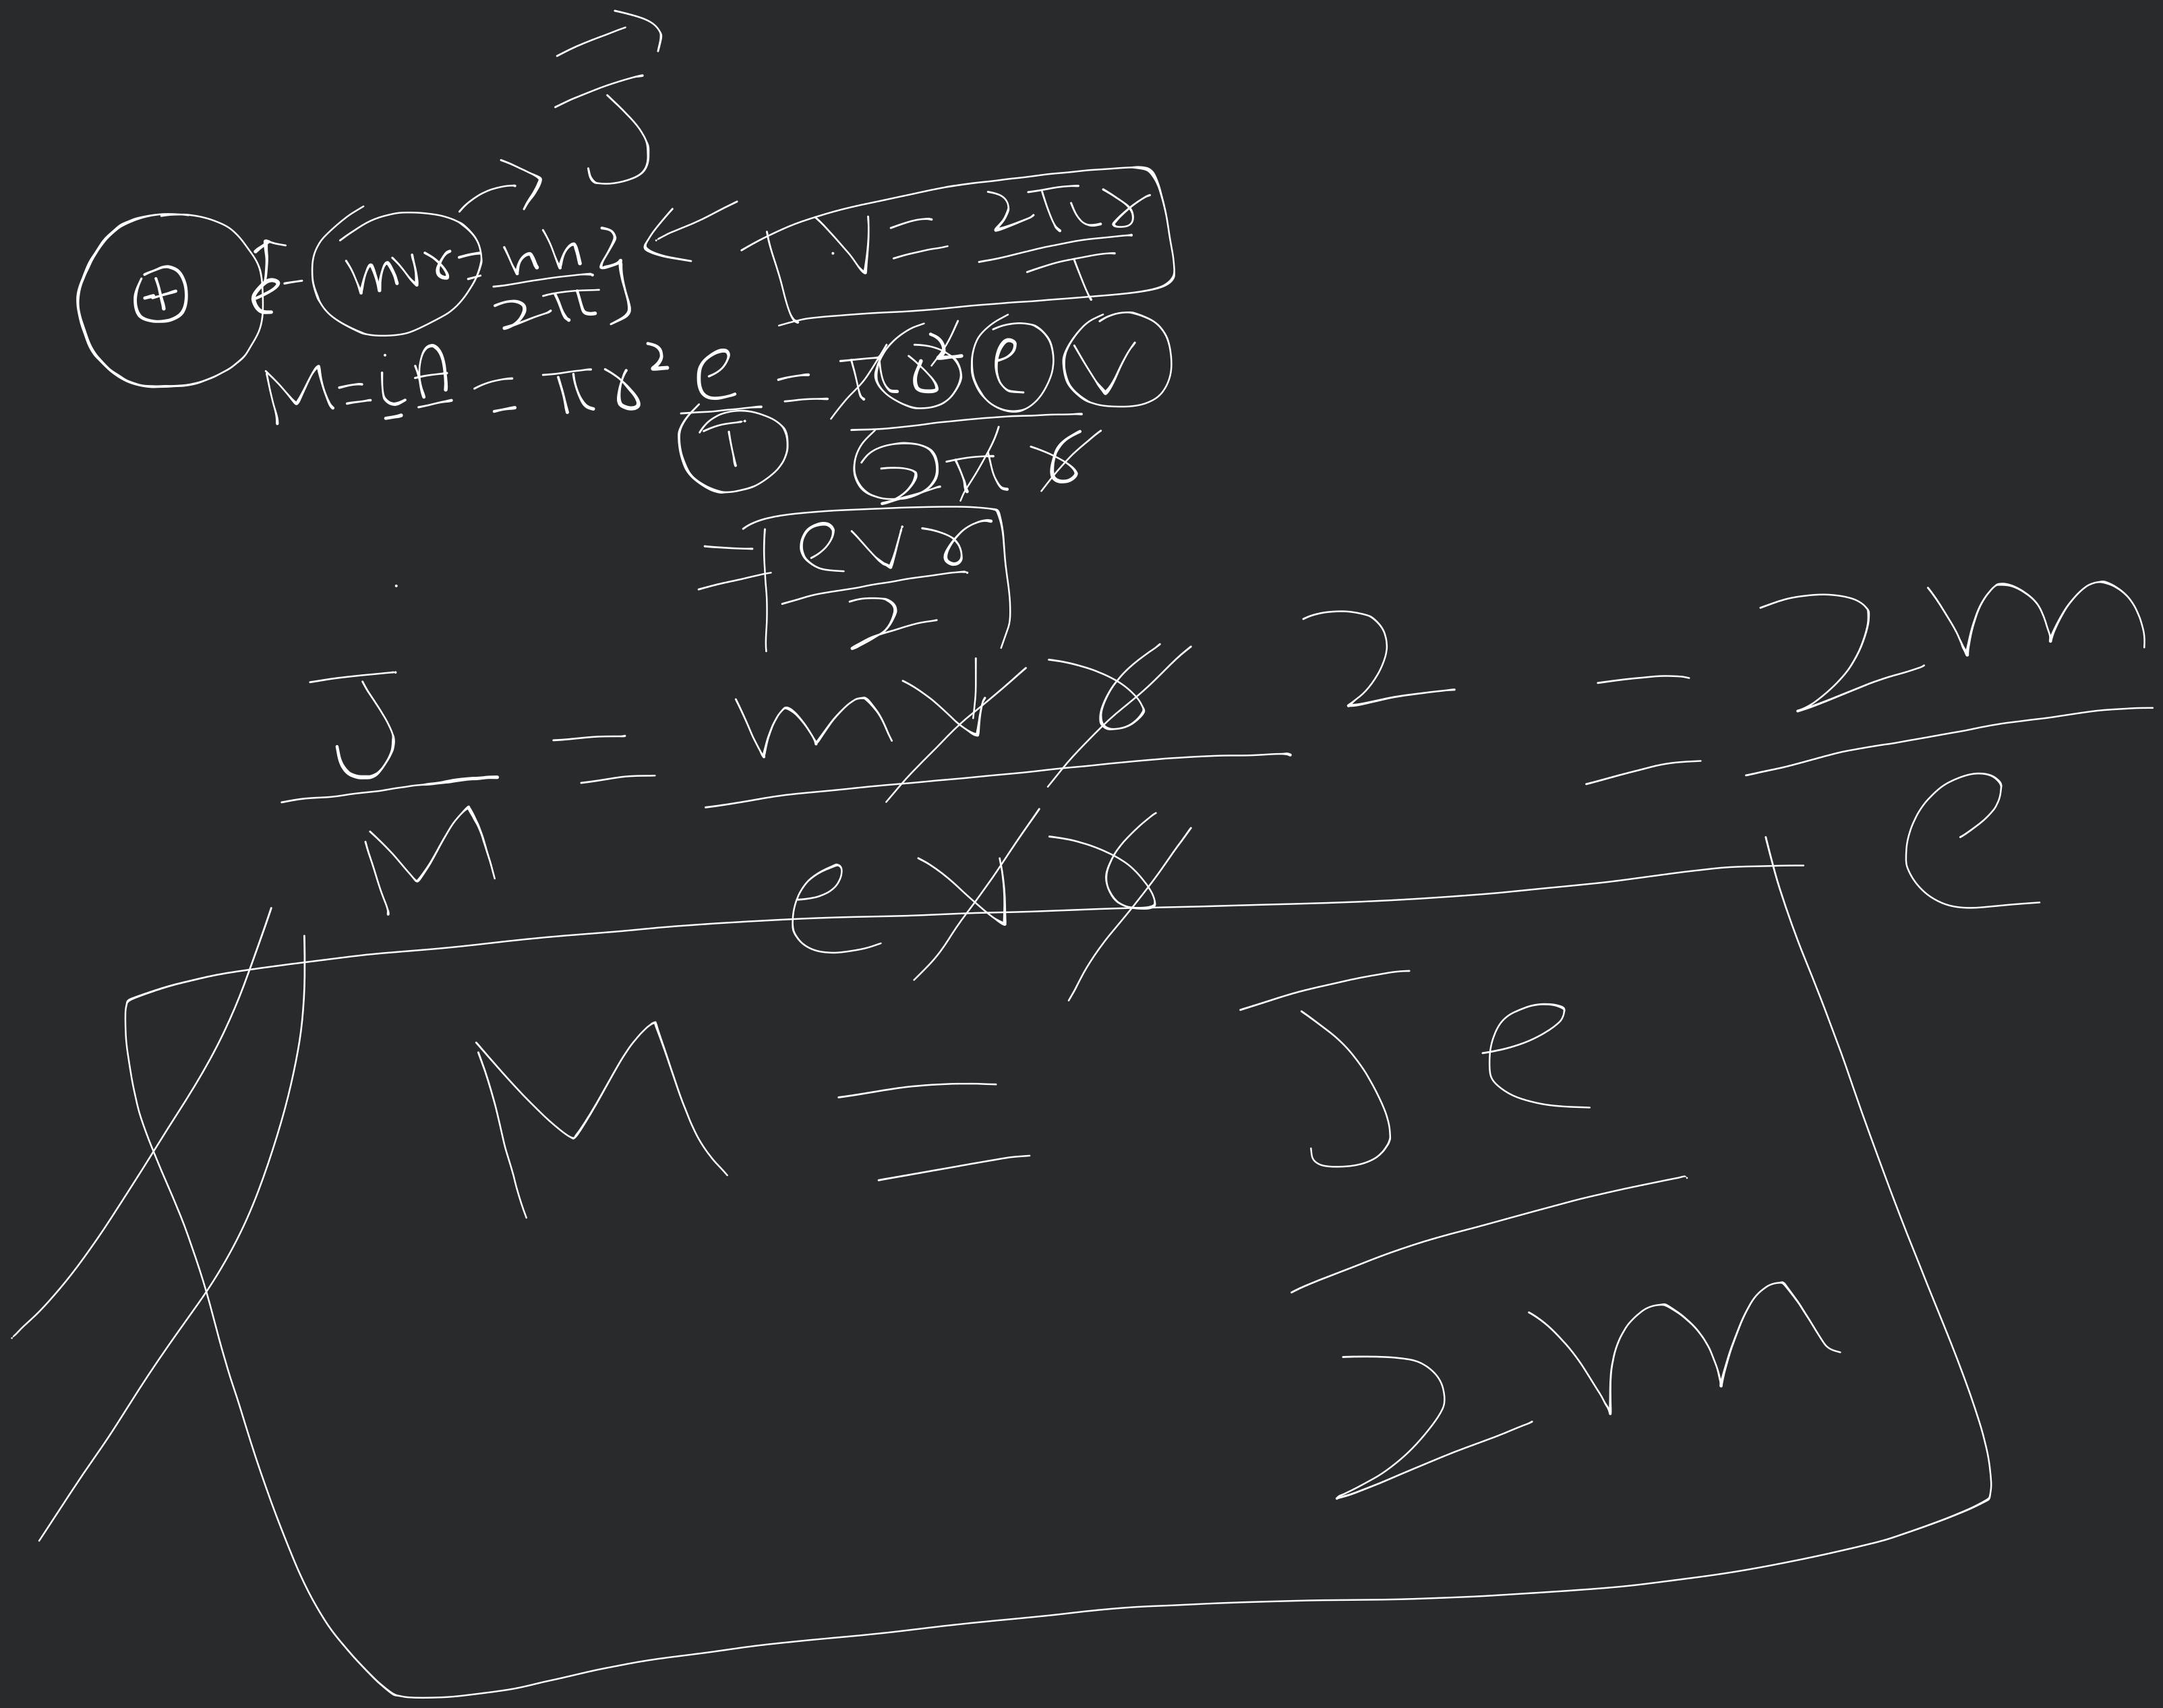 = J
+ e- mvr = nh/2π v = 2πr/T
M = iA = πr² e/T = πr²ev/2πr
= evr/2
J/M = mvr 2/evr = 2m/e
M = Je/2m